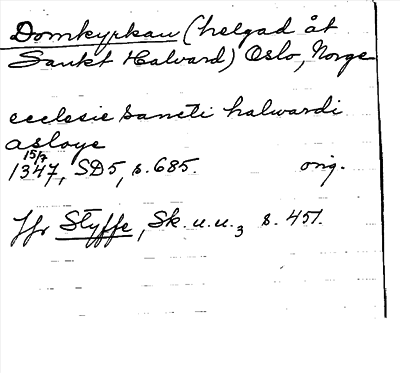 Domkyrkan (helgad åt
Sankt Halvard) Oslo, Norge
ecclesie sancti halwardi
asloye
15/7
1347, SD5, s. 685. orig.
Jfr Styffe, Sk. u. u. 3 s. 451.